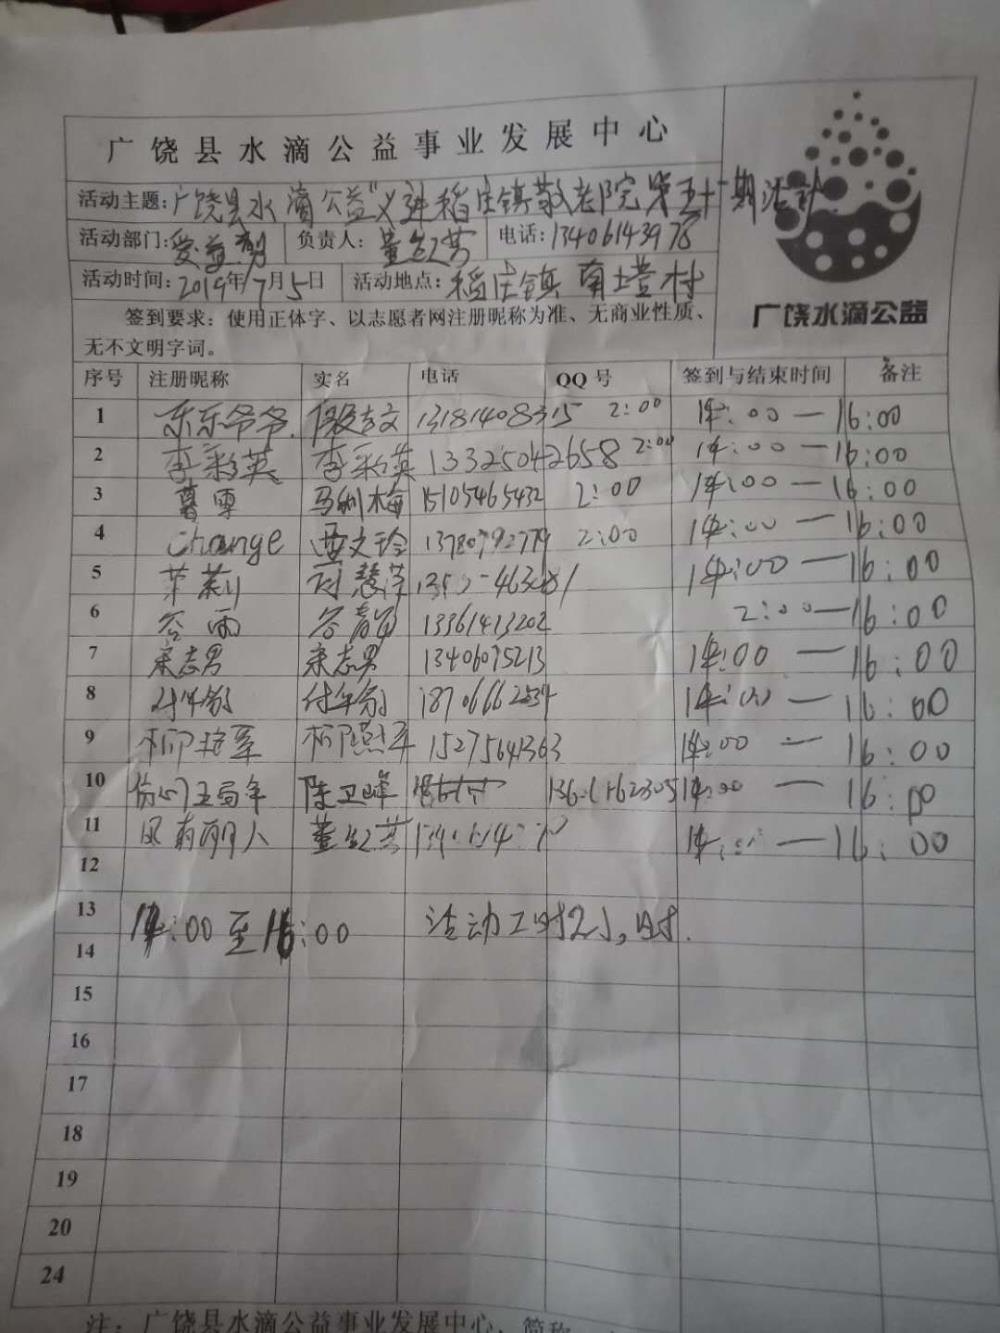 广饶县水滴公益事业发展中心
活动主题:广饶县水滴公益"义进稻庄镇敬老院第五十一期活动.
活动部门: 负责人: 董红芳 电话:13406143975
活动时间:2019年7月5日 活动地点:稻庄镇 南塔村
广饶水滴公益
签到要求：使用正体字、以志愿者网注册昵称为准、无商业性质、
无不文明字词。
序号 注册昵称 实名 电话 QQ号 签到与结束时间 备注
1 东东爷爷. 13181408315 2:00 14:00—16:00
2 李彩英 李彩英 13325042658 2:00 14:00—16:00
3 暮雪 马俐梅 15105465432 2:00 14:00—16:00
4 change 13780792779 2:00 14:00—16:00
5 茉莉 14:00—16:00
6 谷雨 谷静 13361413202 2:00—16:00
7 宋志男 宋志男 13406075213 14:00—16:00
8 付年份 付年份 18706662534 14:00—16:00
9 柳将军 15275641363 14:00—16:00
10 陈卫峰 14:00—16:00
11 董红芳 14:00—16:00
12
13 14:00至16:00 活动工时2小时.
14
15
16
17
18
19
20
24
注：广饶县水滴公益事业发展中心，简称